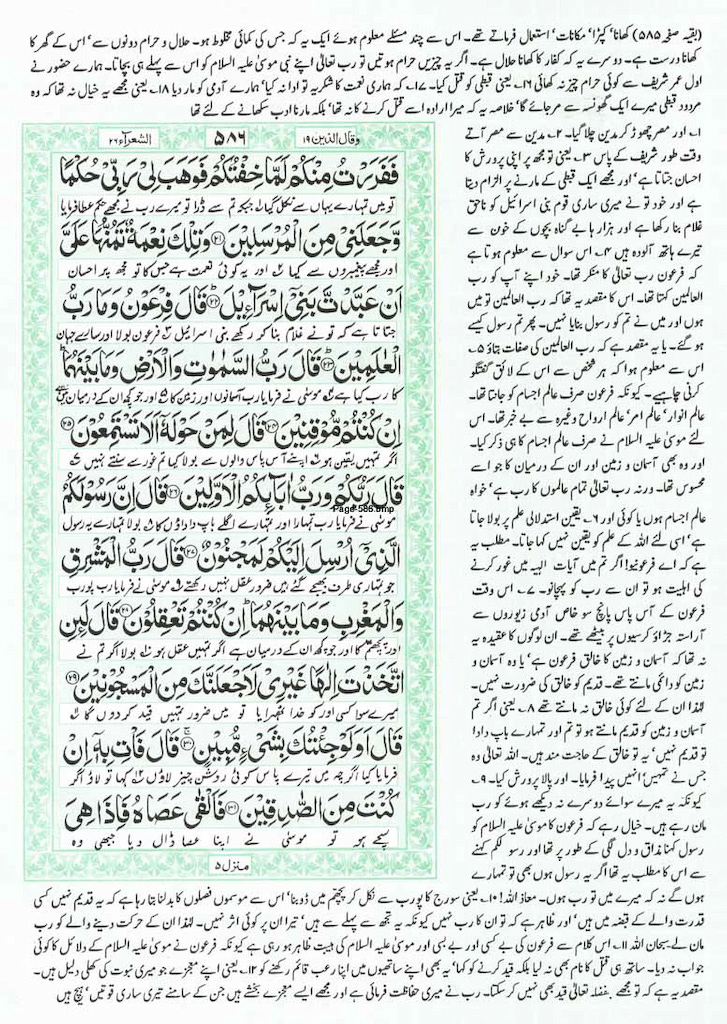 (بقیہ صفحہ ۵۸۵) کھانا' کپڑا' مکانات' استعمال فرماتے تھے۔ اس سے چند مسئلے معلوم ہوئے ایک یہ کہ جس کی کمائی مخلوط ہو۔ حلال و حرام دونوں سے' اس کے گھر کا
کھانا درست ہے۔ دوسرے یہ کہ کفار کا کھانا حلال ہے۔ اگر یہ چیزیں حرام ہوتیں تو رب تعالیٰ اپنے نبی موسیٰ علیہ السلام کو اس سے پہلے ہی بچاتا۔ ہمارے حضور نے
اول عمر شریف سے کوئی حرام چیز نہ کھائی ۱۶۔ یعنی قبطی کو قتل کیا۔ ۱۷۔ کہ ہماری نعمت کا شکریہ تو ادا نہ کیا' ہمارے آدمی کو مار دیا ۱۸۔ یعنی مجھے یہ خیال نہ تھا کہ وہ
مردود قبطی میرے ایک گھونسہ سے مر جائے گا' خلاصہ یہ کہ میرا ارادہ اسے قتل کرنے کا نہ تھا' بلکہ مارنا ادب سکھانے کے لئے تھا
وقال الذین ۱۹
۵۸۶
الشعرآء ۲۶
فَفَرَرْتُ مِنْكُمْ لَمَّا خِفْتُكُمْ فَوَهَبَ لِیْ رَبِّیْ حُكْمًا
تو میں تمہارے یہاں سے نکل گیا جبکہ تم سے ڈرا تو میرے رب نے مجھے حکم عطا فرمایا
وَّجَعَلَنِیْ مِنَ الْمُرْسَلِیْنَ ۲۱ وَتِلْكَ نِعْمَةٌ تَمُنُّهَا عَلَیَّ
اور مجھے پیغمبروں سے کیا اور یہ کوئی نعمت ہے جس کا تو مجھ پر احسان
اَنْ عَبَّدْتَّ بَنِیْۤ اِسْرَآءِیْلَ ۲۲ قَالَ فِرْعَوْنُ وَمَا رَبُّ
جتاتا ہے کہ تو نے غلام بنا کر رکھے بنی اسرائیل فرعون بولا اور سارے جہان
الْعٰلَمِیْنَ ۲۳ قَالَ رَبُّ السَّمٰوٰتِ وَالْاَرْضِ وَمَا بَیْنَهُمَا
کا رب کیا ہے موسیٰ نے فرمایا رب آسمانوں اور زمین کا اور جو کچھ ان کے درمیان
اِنْ كُنْتُمْ مُّوْقِنِیْنَ ۲۴ قَالَ لِمَنْ حَوْلَهٗۤ اَلَا تَسْتَمِعُوْنَ ۲۵
اگر تمہیں یقین ہو اپنے آس پاس والوں سے بولا کیا تم غور سے سنتے نہیں
قَالَ رَبُّكُمْ وَرَبُّ اٰبَآئِكُمُ الْاَوَّلِیْنَ ۲۶ قَالَ اِنَّ رَسُوْلَكُمُ
Page-586.bmp
موسیٰ نے فرمایا رب تمہارا اور تمہارے اگلے باپ داداؤں کا بولا تمہارے یہ رسول
الَّذِیْۤ اُرْسِلَ اِلَیْكُمْ لَمَجْنُوْنٌ ۲۷ قَالَ رَبُّ الْمَشْرِقِ
جو تمہاری طرف بھیجے گئے ہیں ضرور عقل نہیں رکھتے موسیٰ نے فرمایا رب پورب
وَالْمَغْرِبِ وَمَا بَیْنَهُمَا اِنْ كُنْتُمْ تَعْقِلُوْنَ ۲۸ قَالَ لَئِنِ
اور پچھم کا اور جو کچھ ان کے درمیان ہے اگر تمہیں عقل ہو بولا اگر تم نے
اتَّخَذْتَ اِلٰهًا غَیْرِیْ لَاَجْعَلَنَّكَ مِنَ الْمَسْجُوْنِیْنَ ۲۹
میرے سوا کسی اور کو خدا ٹھہرایا تو میں ضرور تمہیں قید کر دوں گا
قَالَ اَوَلَوْ جِئْتُكَ بِشَیْءٍ مُّبِیْنٍ ۳۰ قَالَ فَاْتِ بِهٖۤ اِنْ
فرمایا کیا اگرچہ میں تیرے پاس کوئی روشن چیز لاؤں کہا تو لاؤ اگر
كُنْتَ مِنَ الصّٰدِقِیْنَ ۳۱ فَاَلْقٰی عَصَاهُ فَاِذَا هِیَ
سچے ہو تو موسیٰ نے اپنا عصا ڈال دیا جبھی وہ
منزل ۵
۱۔ اور مصر چھوڑ کر مدین چلا گیا۔ ۲۔ مدین سے مصر آتے
وقت طور شریف کے پاس ۳۔ یعنی تو مجھ پر اپنی پرورش کا
احسان جتاتا ہے' اور مجھے ایک قبطی کے مارنے پر الزام دیتا
ہے اور خود تو نے میری ساری قوم بنی اسرائیل کو ناحق
غلام بنا رکھا ہے اور ہزارہا بے گناہ بچوں کے خون سے
تیرے ہاتھ آلودہ ہیں ۴۔ اس سوال سے معلوم ہوتا ہے
کہ فرعون رب تعالیٰ کا منکر تھا۔ خود اپنے آپ کو رب
العالمین کہتا تھا۔ اس کا مقصد یہ تھا کہ رب العالمین تو میں
ہوں اور میں نے تم کو رسول بنایا نہیں۔ پھر تم رسول کیسے
ہو گئے۔ یا یہ مقصد ہے کہ رب العالمین کی صفات بتاؤ ۵۔
اس سے معلوم ہوا کہ ہر شخص سے اس کے لائق گفتگو
کرنی چاہیے۔ کیونکہ فرعون صرف عالم اجسام کو جانتا تھا۔
عالم انوار' عالم امر' عالم ارواح وغیرہ سے بے خبر تھا۔ اس
لئے موسیٰ علیہ السلام نے صرف عالم اجسام کا ہی ذکر کیا۔
اور وہ بھی آسمان و زمین اور ان کے درمیان کا جو اسے
محسوس تھا۔ ورنہ رب تعالیٰ تمام عالموں کا رب ہے' خواہ
عالم اجسام ہوں یا کوئی اور ۶۔ یقین استدلالی علم پر بولا جاتا
ہے' اسی لئے اللہ کے علم کو یقین نہیں کہا جاتا۔ مطلب یہ
ہے کہ اے فرعونیو! اگر تم میں آیات الٰہیہ میں غور کرنے
کی اہلیت ہو تو ان سے رب کو پہچانو۔ ۷۔ اس وقت
فرعون کے آس پاس پانچ سو خاص آدمی زیوروں سے
آراستہ جڑاؤ کرسیوں پر بیٹھے تھے۔ ان لوگوں کا عقیدہ یہ
نہ تھا کہ آسمان و زمین کا خالق فرعون ہے' یا وہ آسمان و
زمین کو دائمی مانتے تھے۔ قدیم کو خالق کی ضرورت نہیں۔
لہٰذا ان کے لئے کوئی خالق نہ مانتے تھے ۸۔ یعنی اگر تم
آسمان و زمین کو قدیم مانتے ہو تو تم اور تمہارے باپ دادا
تو قدیم نہیں' یہ تو خالق کے حاجت مند ہیں۔ اللہ تعالیٰ وہ
جس نے تمہیں' انہیں پیدا فرمایا۔ اور پالا پرورش کیا۔ ۹۔
کیونکہ یہ میرے سوائے دوسرے نہ دیکھے ہوئے کو رب
مان رہے ہیں۔ خیال رہے کہ فرعون کا موسیٰ علیہ السلام کو
رسول کہنا مذاق و دل لگی کے طور پر تھا اور رسولکم کہنے
سے اس کا مطلب یہ تھا اگر یہ رسول ہوں بھی تو تمہارے
ہوں گے نہ کہ میرے میں تو رب ہوں۔ معاذ اللہ! ۱۰۔ یعنی سورج کا پورب سے نکل کر پچھم میں ڈوبنا' اس سے موسموں فصلوں کا بدلنا بتا رہا ہے کہ یہ قدیم نہیں کسی
قدرت والے کے قبضہ میں ہیں' اور ظاہر ہے کہ تو ان کا رب نہیں کیونکہ یہ تجھ سے پہلے سے ہیں' تیرا ان پر کوئی اثر نہیں۔ لہٰذا ان کے حرکت دینے والے کو رب
مان لے۔ سبحان اللہ ۱۱۔ اس کلام سے فرعون کی بے کسی اور بے بسی اور موسیٰ علیہ السلام کی ہیبت ظاہر ہو رہی ہے کیونکہ فرعون نے موسیٰ علیہ السلام کے دلائل کا کوئی
جواب نہ دیا۔ ساتھ ہی قتل کا نام بھی نہ لیا بلکہ قید کرنے کو کہا' یہ بھی اپنے ساتھیوں میں اپنا رعب قائم رکھنے کو ۱۲۔ یعنی اپنے معجزے جو میری نبوت کی کھلی دلیل ہیں۔
مقصد یہ ہے کہ تو مجھے بفضلہ تعالیٰ قید بھی نہیں کر سکتا۔ رب نے میری حفاظت فرمائی ہے اور مجھے ایسے معجزے بخشے ہیں جن کے سامنے تیری ساری قوتیں' ہیچ ہیں